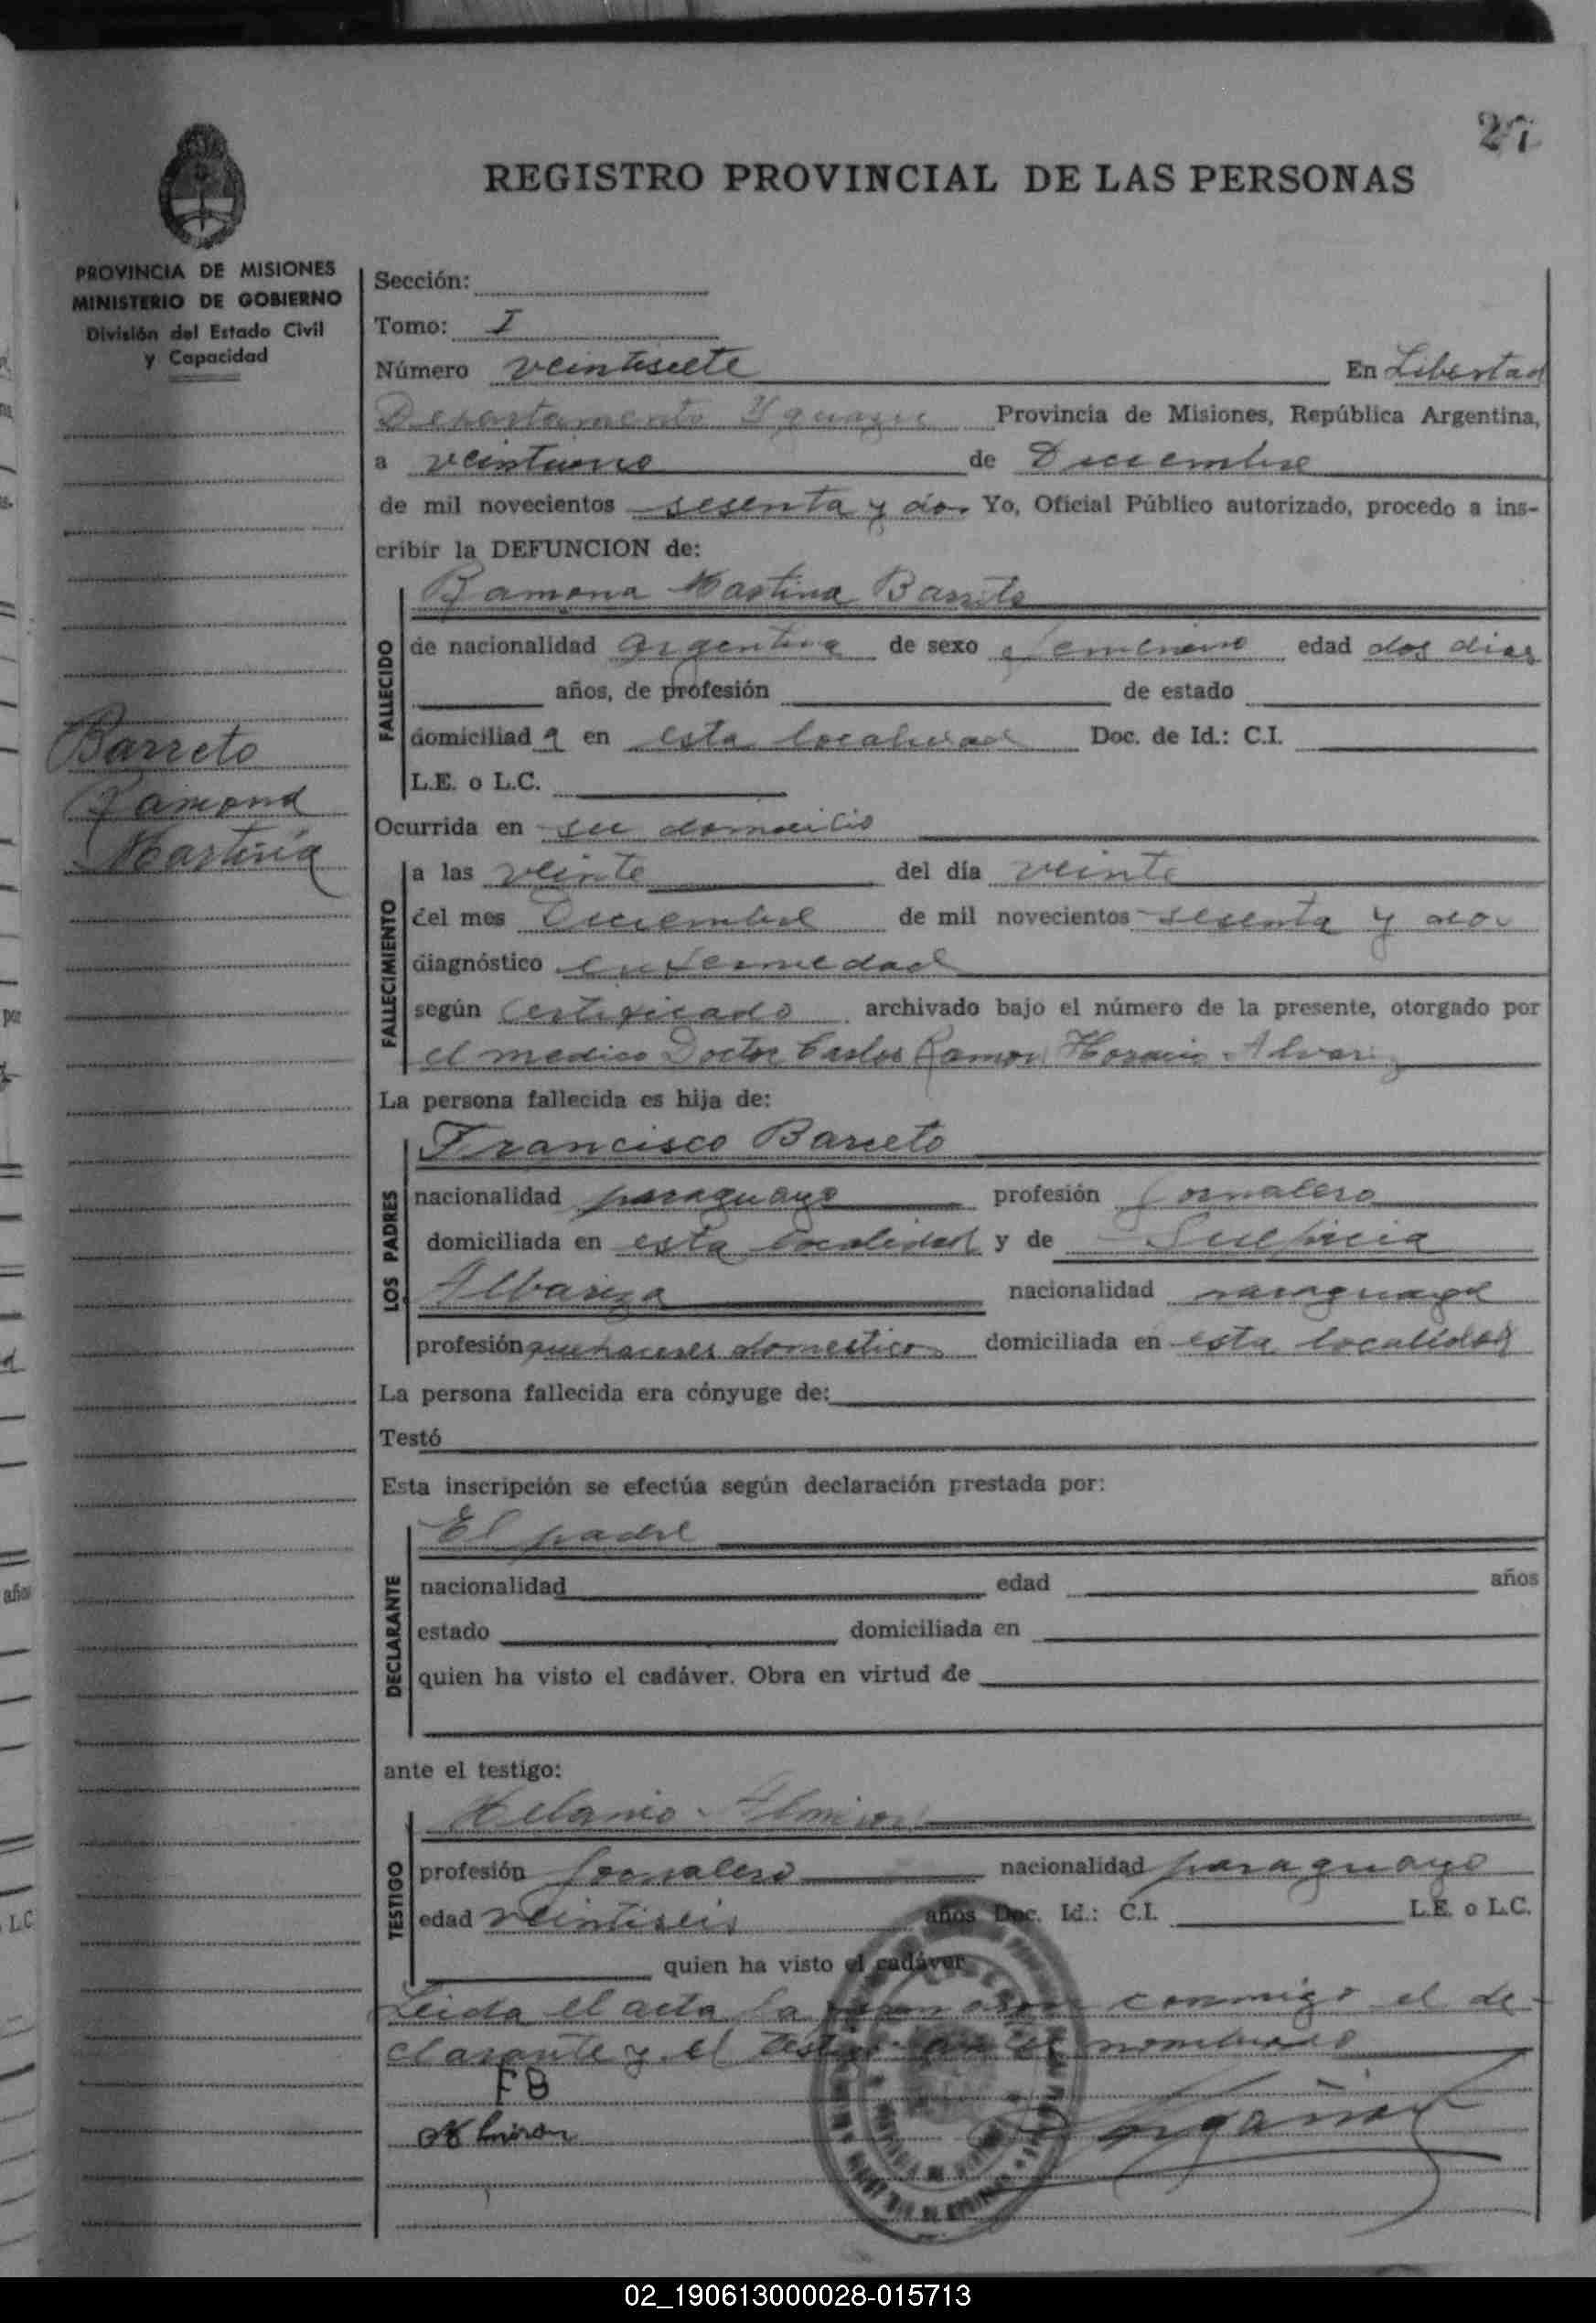 27
REGISTRO PROVINCIAL DE LAS PERSONAS
PROVINCIA DE MISIONES
MINISTERIO DE GOBIERNO
División del Estado Civil
y Capacidad
Barreto
Ramona
Martina
Sección:
Tomo: I
Número veintisiete En Libertad
Departamento Yguazu Provincia de Misiones, República Argentina,
a veintuno de Diciembre
de mil novecientos sesenta y dos Yo, Oficial Público autorizado, procedo a ins-
cribir la DEFUNCION de:
Ramona Martina Barreto
FALLECIDO
de nacionalidad argentina de sexo femenino edad dos dias
años, de profesión de estado
domiciliad a en esta localidad Doc. de Id.: C.I.
L.E. o L.C.
Ocurrida en su domicilio
FALLECIMIENTO
a las veinte del día veinte
del mes Diciembre de mil novecientos sesenta y dos
diagnóstico enfermedad
según certificado archivado bajo el número de la presente, otorgado por
el medico Doctor Carlos Ramon Horacio Alvarez
La persona fallecida es hija de:
LOS PADRES
Francisco Barreto
nacionalidad paraguayo profesión jornalero
domiciliada en esta localidad y de Sulpicia
Albariza nacionalidad paraguaya
profesión quehaceres domesticos domiciliada en esta localidad
La persona fallecida era cónyuge de:
Testó
Esta inscripción se efectúa según declaración prestada por:
DECLARANTE
El padre
nacionalidad edad años
estado domiciliada en
quien ha visto el cadáver. Obra en virtud de
ante el testigo:
TESTIGO
Melanio Almiron
profesión jornalero nacionalidad paraguayo
edad veintiseis años Doc. Id.: C.I. L.E. o L.C.
quien ha visto el cadáver
Leida el acta la firmaron conmigo el de-
clarante y el testigo nombrado
FB
Almiron
02_190613000028-015713